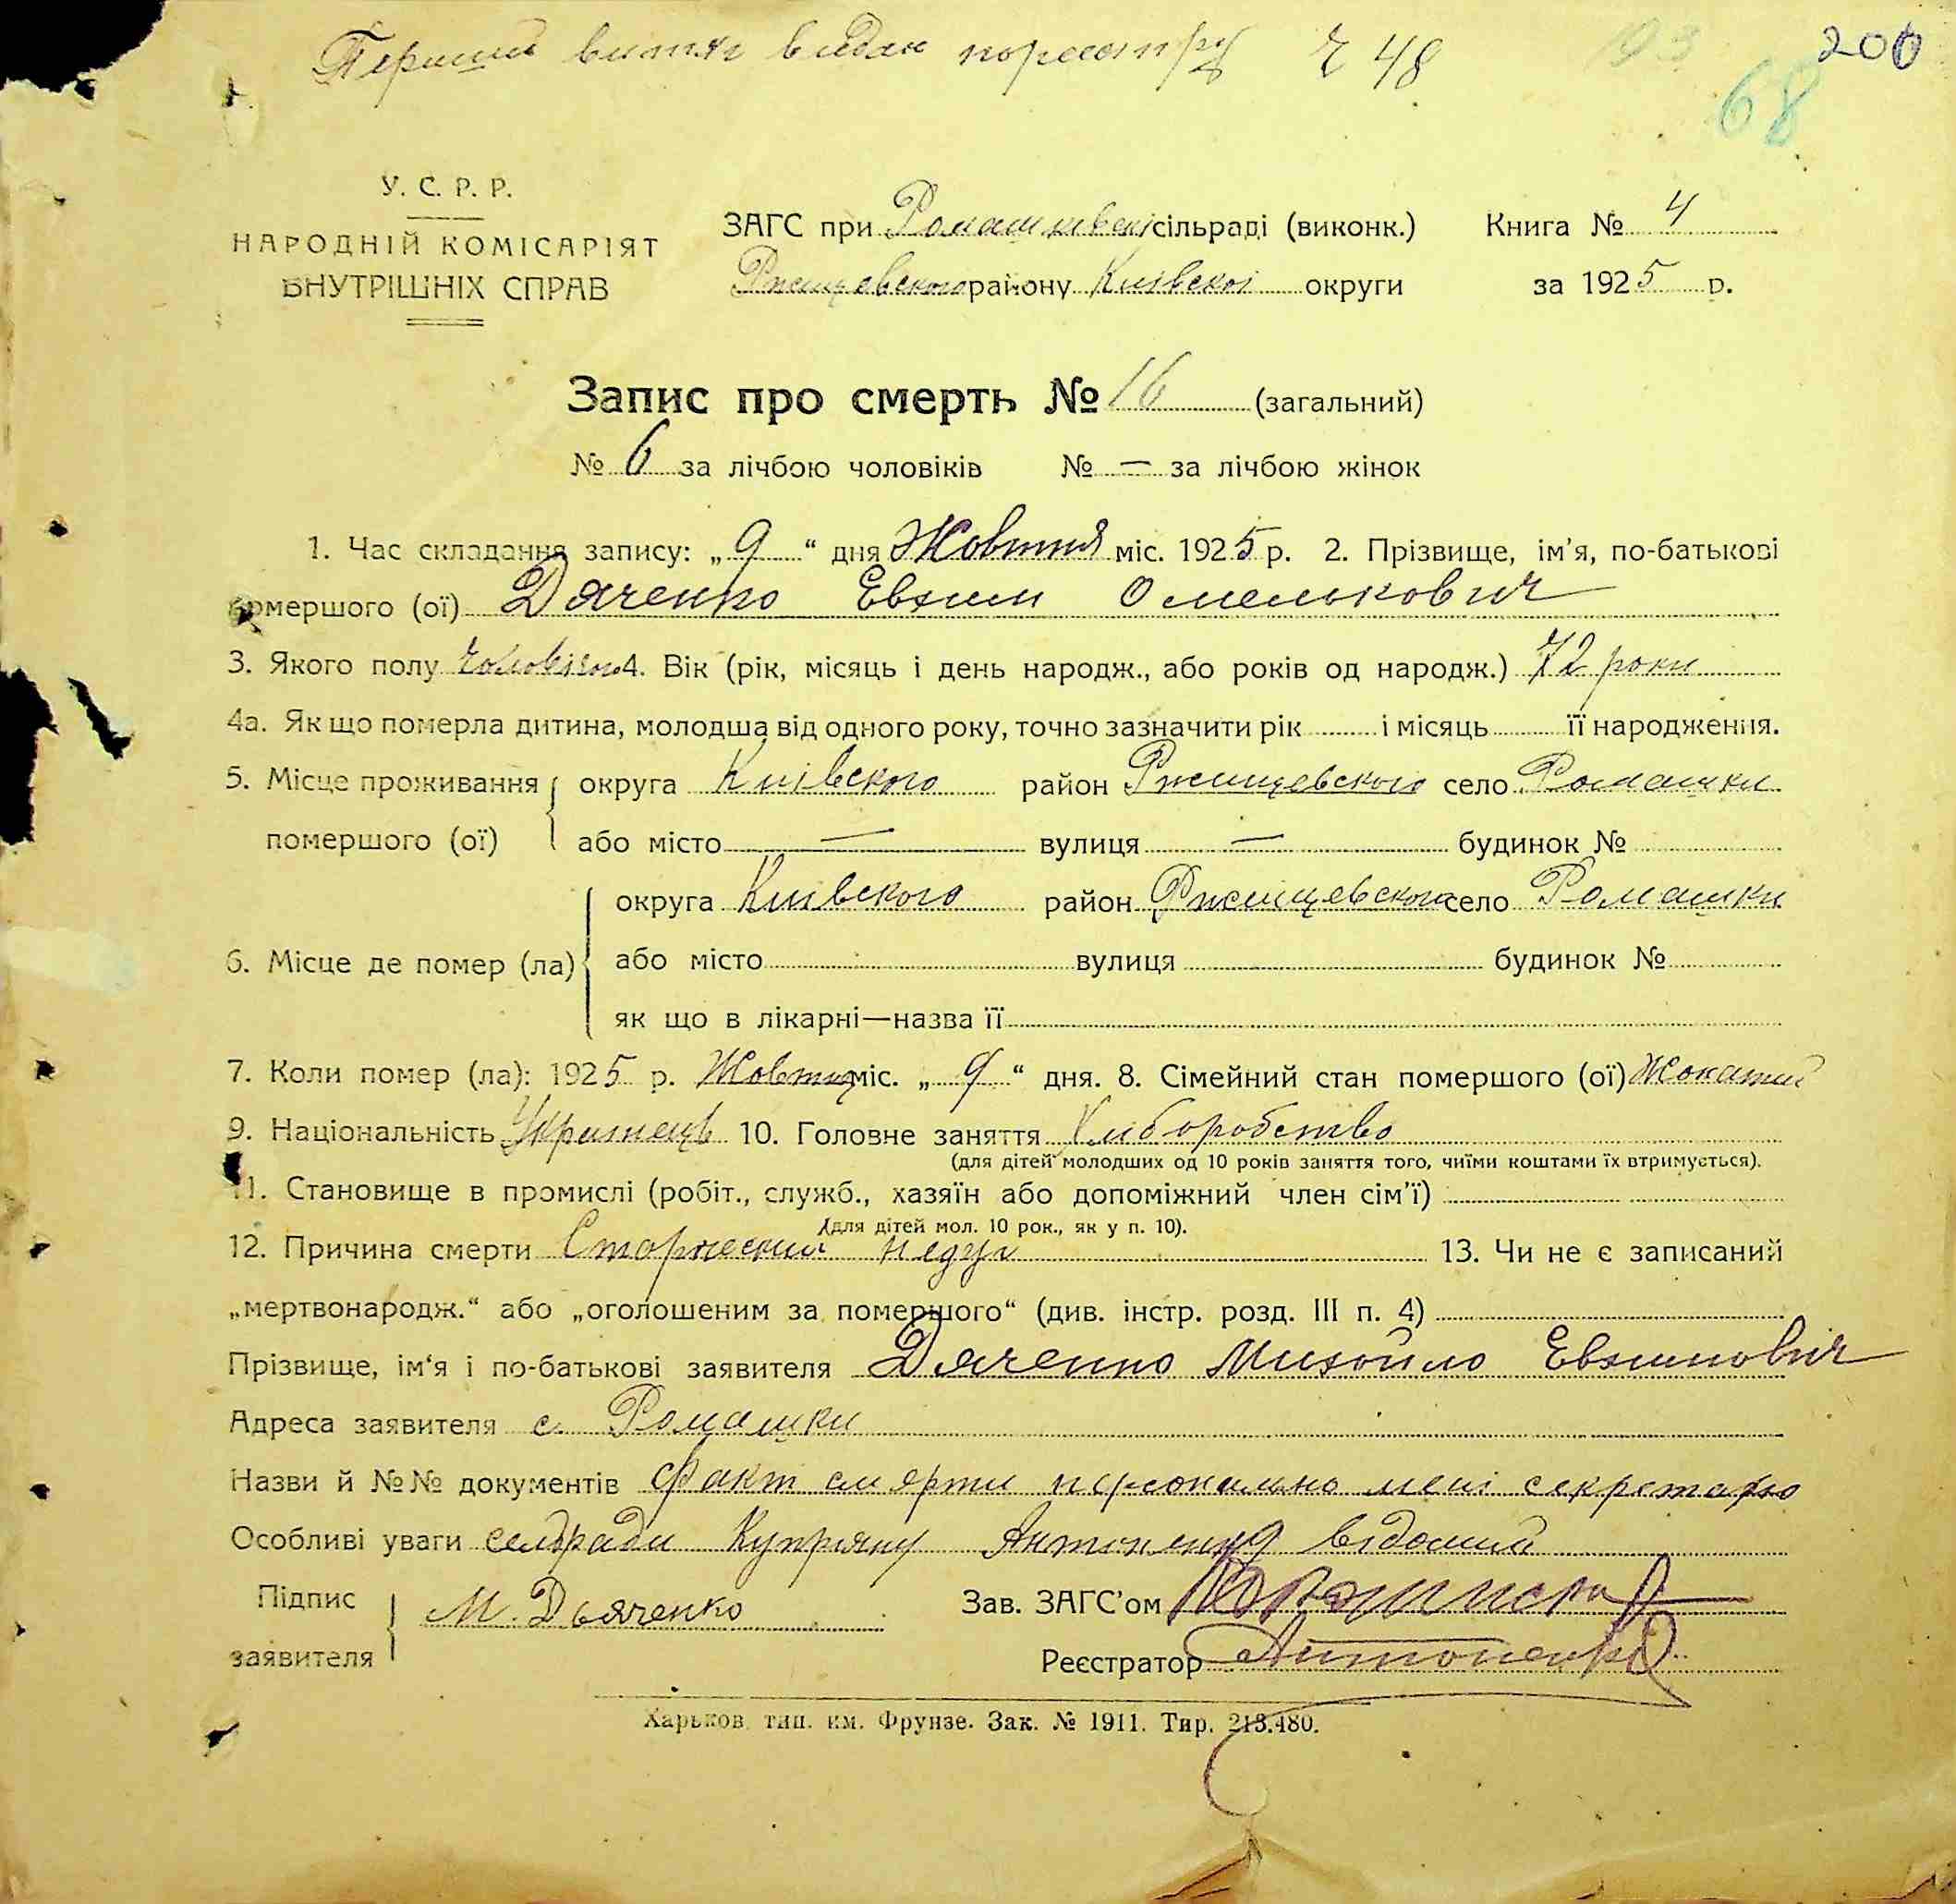 Перший витяг видан пореестру ч 48
193 200
68
У. С. Р. Р.
НАРОДНІЙ КОМІСАРІЯТ
ВНУТРІШНІХ СПРАВ
ЗАГС при Ромашківскі сільраді (виконк.) Книга № 4
Ржищевского району Київскої округи за 1925 р.
Запис про смерть № 16 (загальний)
№ 6 за лічбою чоловіків № — за лічбою жінок
1. Час складання запису: „9“ дня Жовтня міс. 1925 р. 2. Прізвище, ім’я, по-батькові
помершого (ої) Дяченко Евхим Омелькович
3. Якого полу чоловічого 4. Вік (рік, місяць і день народж., або років од народж.) 72 роки
4а. Як що померла дитина, молодша від одного року, точно зазначити рік і місяць її народження.
5. Місце проживання округа Київского район Ржищевского село Ромашки
помершого (ої) або місто — вулиця — будинок №
округа Київского район Ржищевского село Ромашки
6. Місце де помер (ла) або місто вулиця будинок №
як що в лікарні—назва її
7. Коли помер (ла): 1925 р. Жовтня міс. „9“ дня. 8. Сімейний стан помершого (ої) Жонатий
9. Національність Українець 10. Головне заняття Хліборобство
(для дітей молодших од 10 років заняття того, чиїми коштами їх втримується).
11. Становище в промислі (робіт., служб., хазяїн або допоміжний член сім’ї)
(для дітей мол. 10 рок., як у п. 10).
12. Причина смерти Старческий недуг 13. Чи не є записаний
„мертвонародж.“ або „оголошеним за помершого“ (див. інстр. розд. III п. 4)
Прізвище, ім‘я і по-батькові заявителя Дяченко Михойло Евхимович
Адреса заявителя с. Ромашки
Назви й №№ документів Факт смерти персонально мені секретарю
Особливі уваги селради Купріяну Антоненку відомий
Підпис М. Дьяченко Зав. ЗАГС’ом
заявителя Реєстратор Антоненко
Харьков. тип. им. Фрунзе. Зак. № 1911. Тир. 213.480.